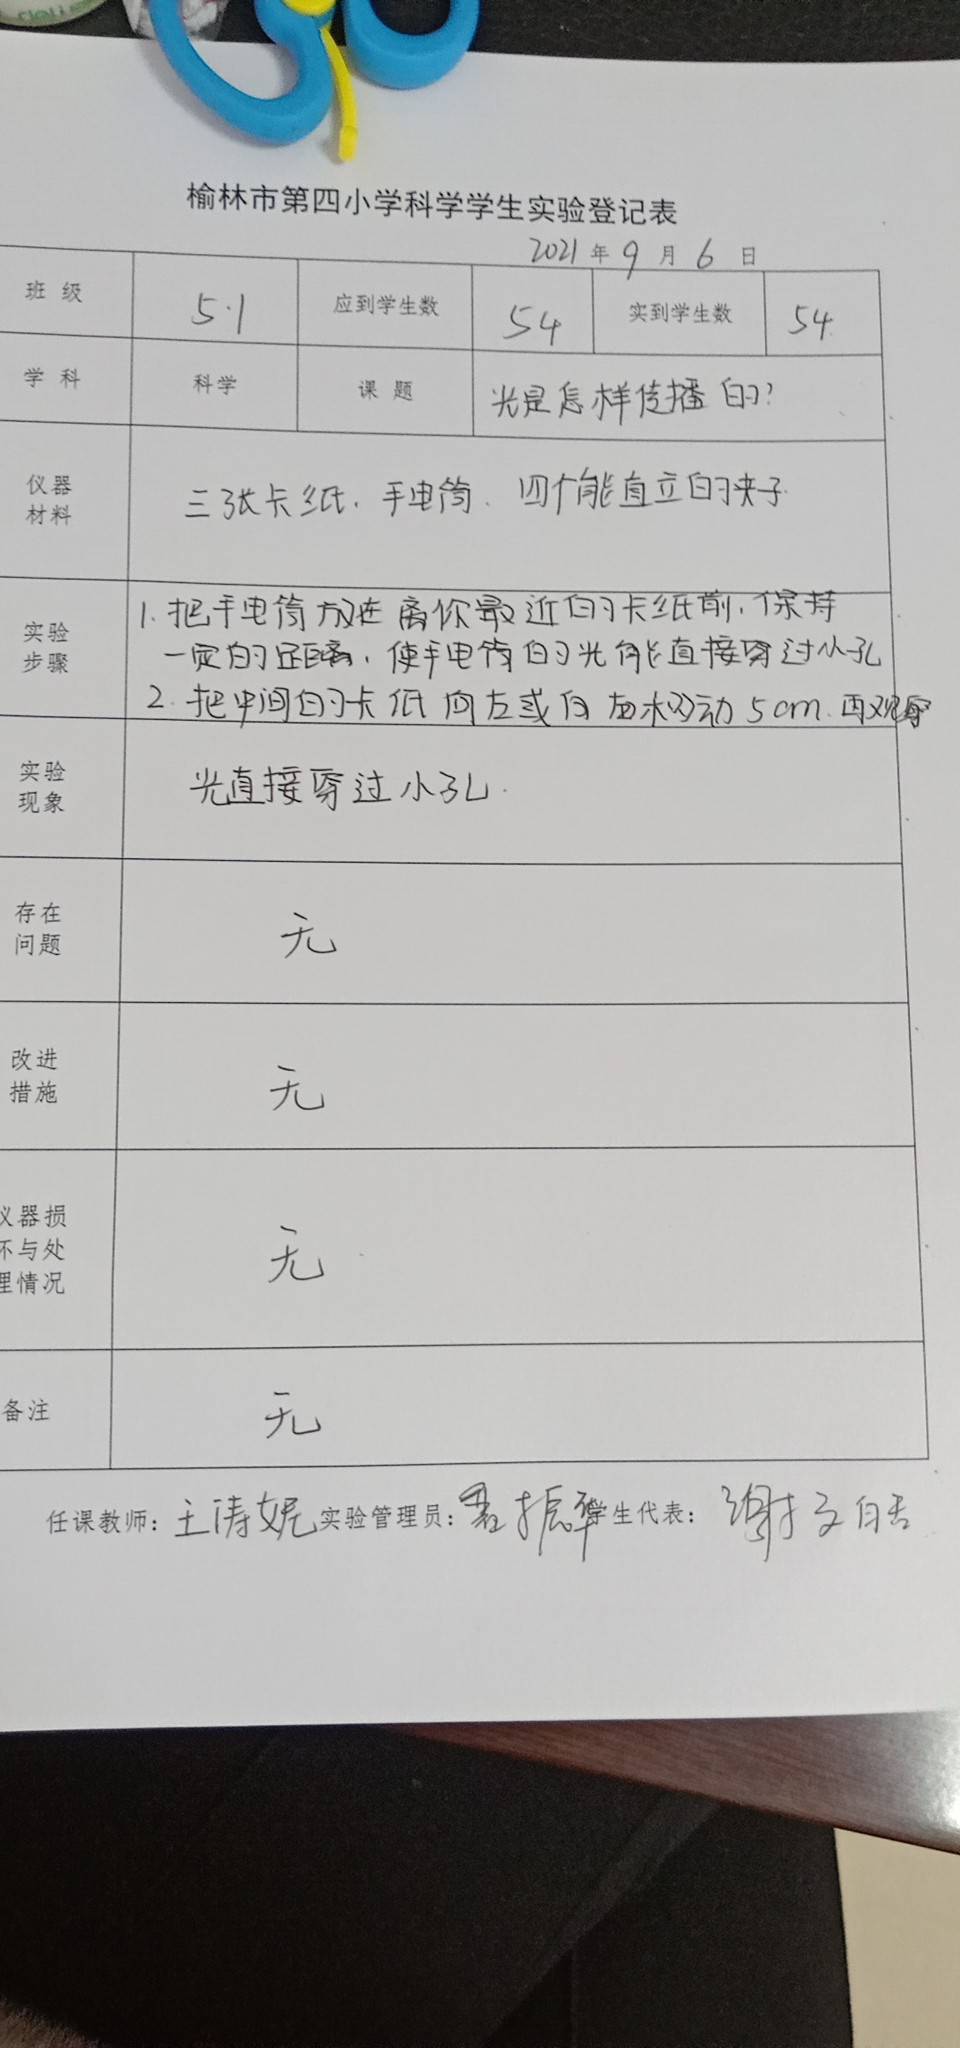 deli
榆林市第四小学科学学生实验登记表
2021年9月6日
班级 5.1 应到学生数 54 实到学生数 54
学科 科学 课题 光是怎样传播的?
仪器
材料
三张卡纸、手电筒、四个能直立的夹子
实验
步骤
1. 把手电筒放在离你最近的卡纸前,保持
一定的距离,使手电筒的光能直接穿过小孔
2. 把中间的卡纸向左或向右移动5cm.再观察
实验
现象
光直接穿过小孔.
存在
问题
无
改进
措施
无
仪器损
坏与处
理情况
无
备注
无
任课教师: 王涛妮 实验管理员: 振华 学生代表: 谢文皓